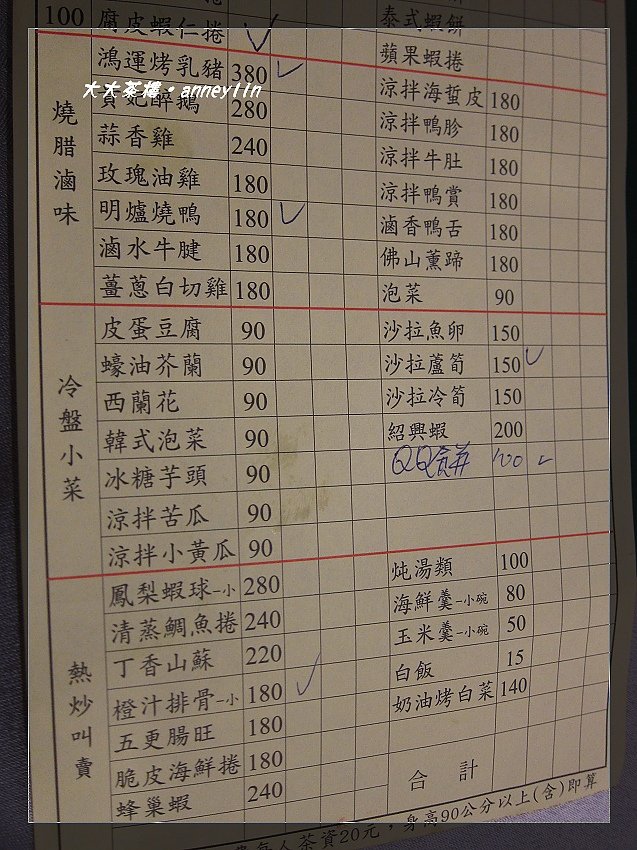 100 腐皮蝦仁捲
泰式蝦餅
蘋果蝦捲
大大茶樓。anneylin
燒腊滷味
鴻運烤乳豬 380
貴妃醉鵝 280
蒜香雞 240
玫瑰油雞 180
明爐燒鴨 180
滷水牛腱 180
薑蔥白切雞 180
涼拌海蜇皮 180
涼拌鴨胗 180
涼拌牛肚 180
涼拌鴨賞 180
滷香鴨舌 180
佛山薰蹄 180
泡菜 90
冷盤小菜
皮蛋豆腐 90
蠔油芥蘭 90
西蘭花 90
韓式泡菜 90
冰糖芋頭 90
涼拌苦瓜 90
涼拌小黃瓜 90
沙拉魚卵 150
沙拉蘆筍 150
沙拉冷筍 150
紹興蝦 200
QQ餅 100
熱炒叫賣
鳳梨蝦球-小 280
清蒸鯛魚捲 240
丁香山蘇 220
橙汁排骨-小 180
五更腸旺 180
脆皮海鮮捲 180
蜂巢蝦 240
炖湯類 100
海鮮羹-小碗 80
玉米羹-小碗 50
白飯 15
奶油烤白菜 140
合計
每人茶資20元，身高90公分以上(含)即算